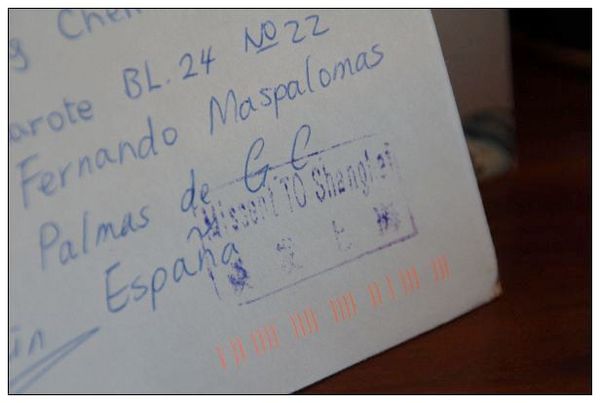 g Chen
arote BL.24 Nº 22
Fernando Maspalomas
Palmas de G C
Missent TO Shanghai
España